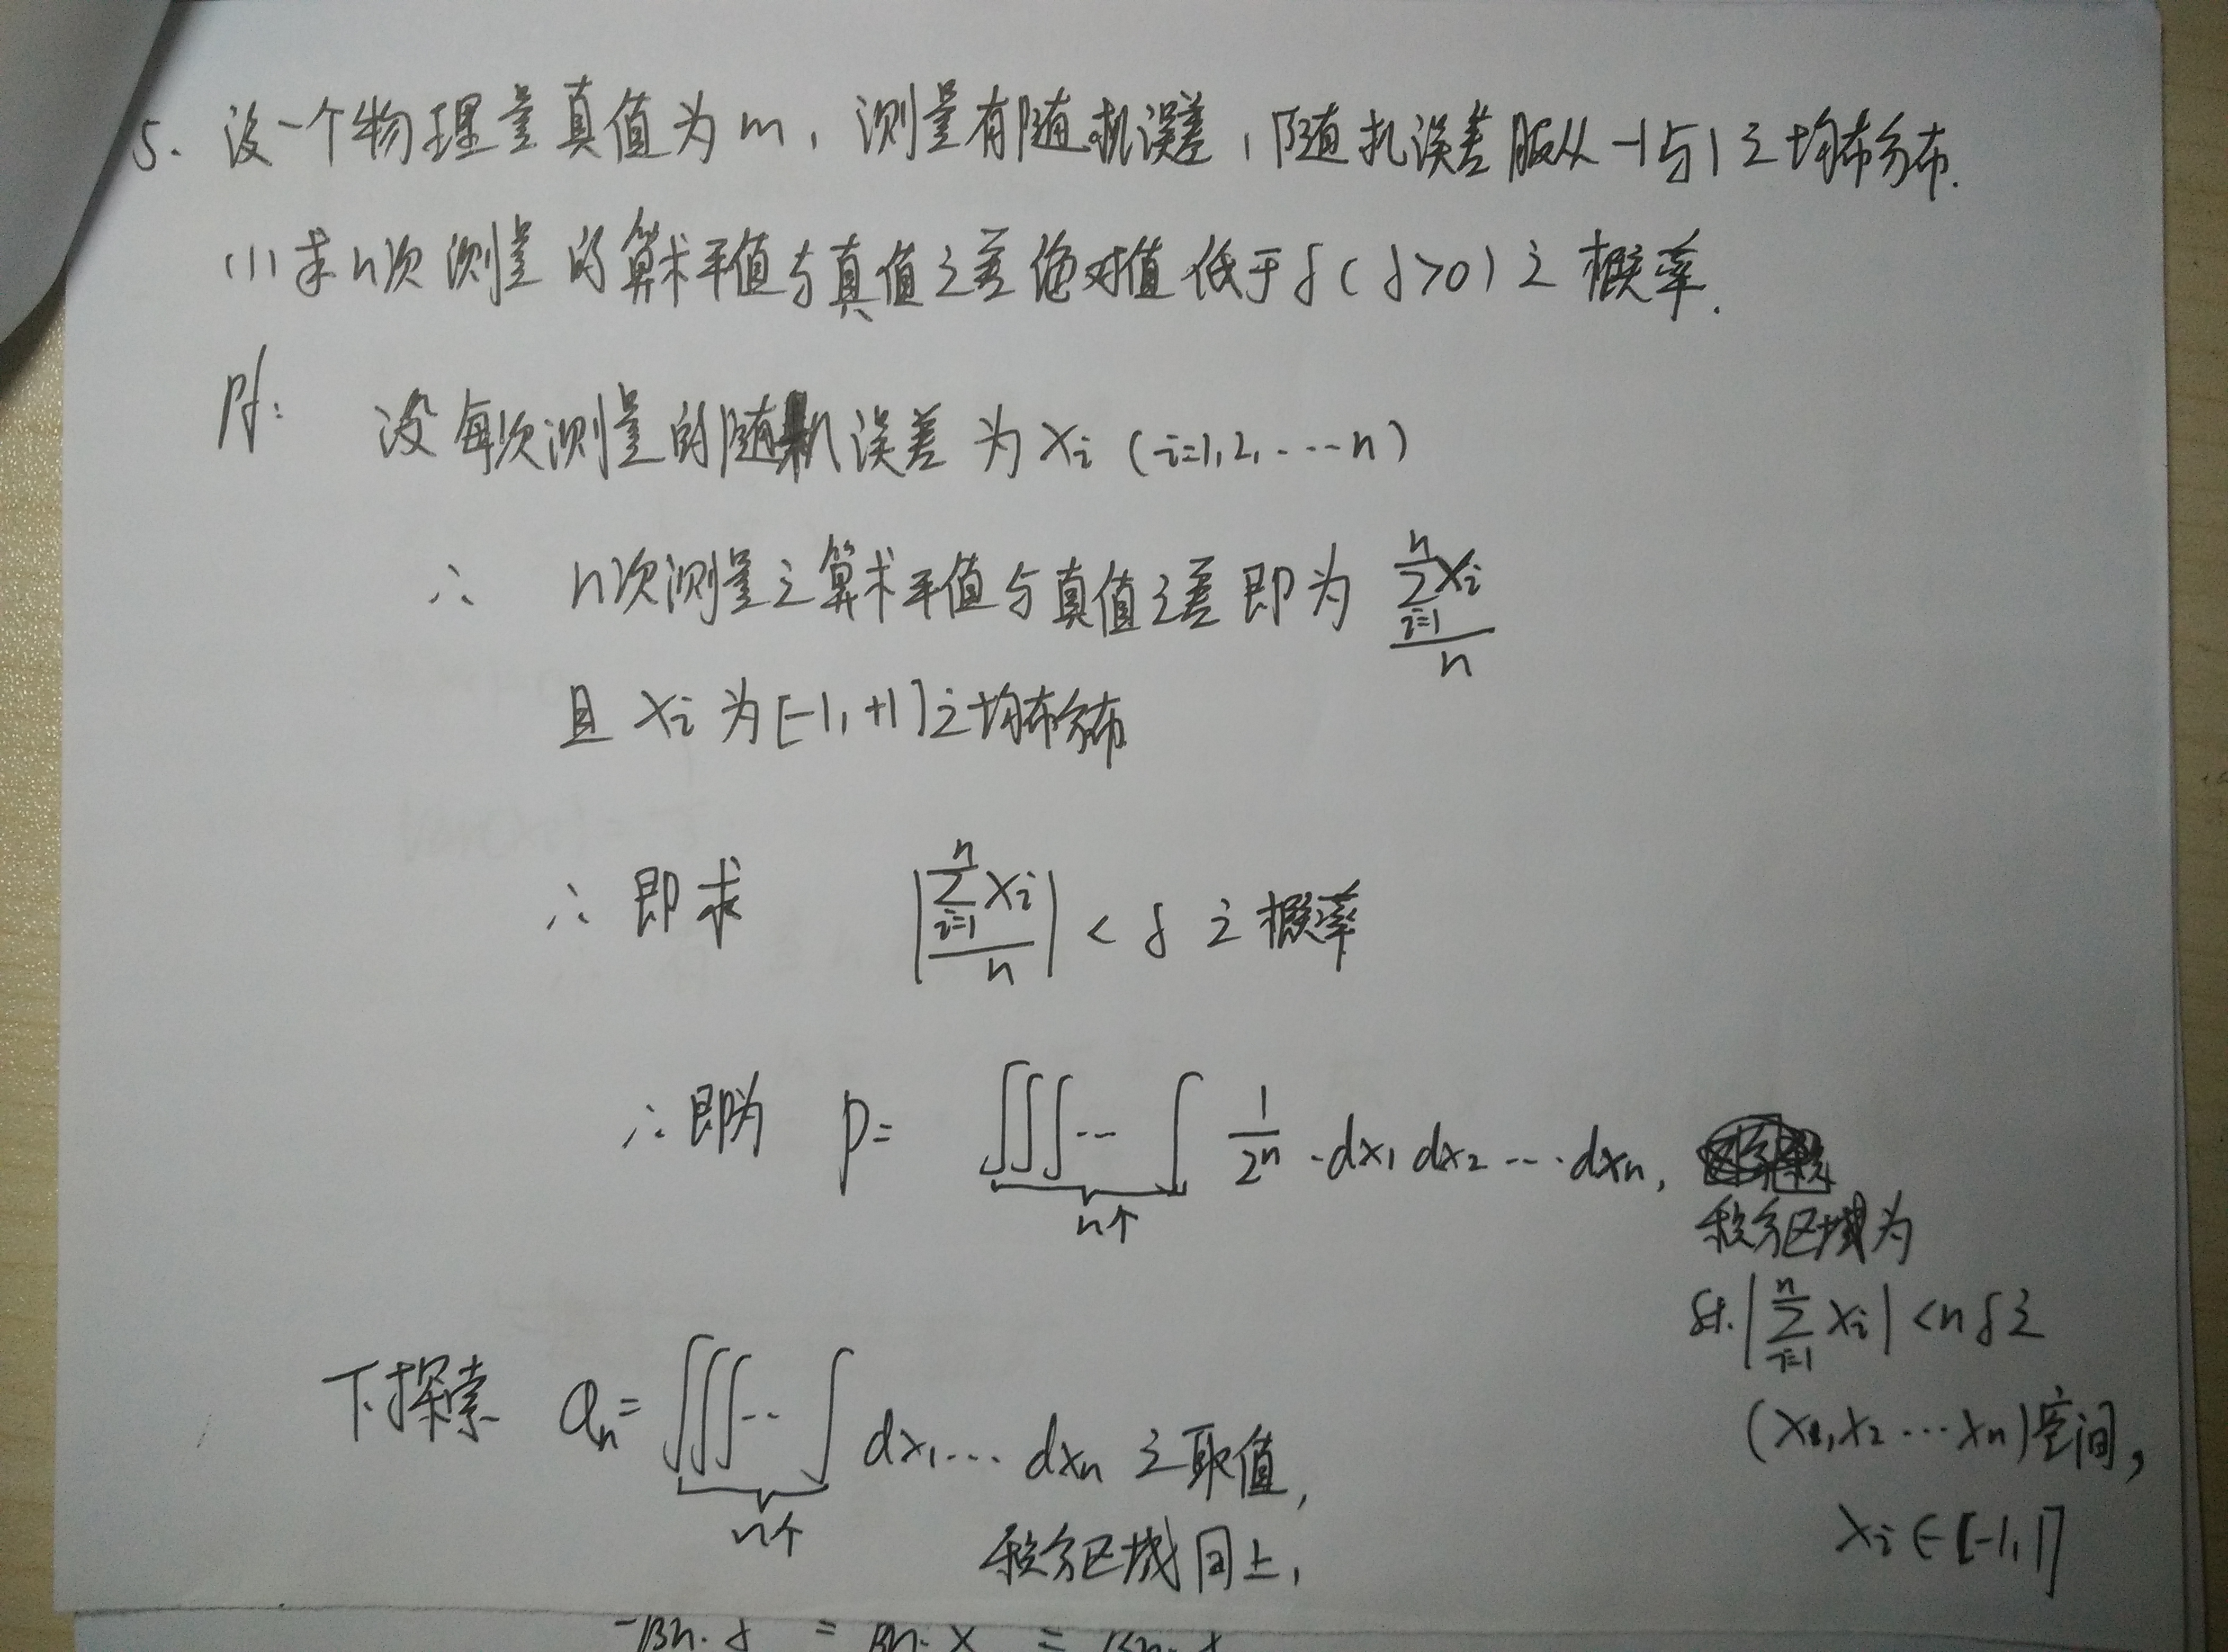 5. 设一个物理量真值为m，测量有随机误差，随机误差服从-1与1之均布分布.
(1) 求n次测量的算术平值与真值之差绝对值低于δ(δ>0)之概率.
Pf: 设每次测量的随机误差为Xi (i=1,2,…n)
∴ n次测量之算术平值与真值之差即为 \frac{\sum_{i=1}^{n} Xi}{n}
且Xi为[-1,+1]之均布分布
∴即求 |\frac{\sum_{i=1}^{n} Xi}{n}| < δ 之概率
∴即为 P= ∫∫∫…∫ \frac{1}{2^n} ·dx1 dx2 … dxn,
n个
积分区域为
st. |\sum_{i=1}^{n} Xi| <nδ之
(X1,X2…Xn)空间,
Xi∈[-1,1]
下探索 Qn= ∫∫∫…∫ dx1… dxn 之取值,
n个
积分区域同上,